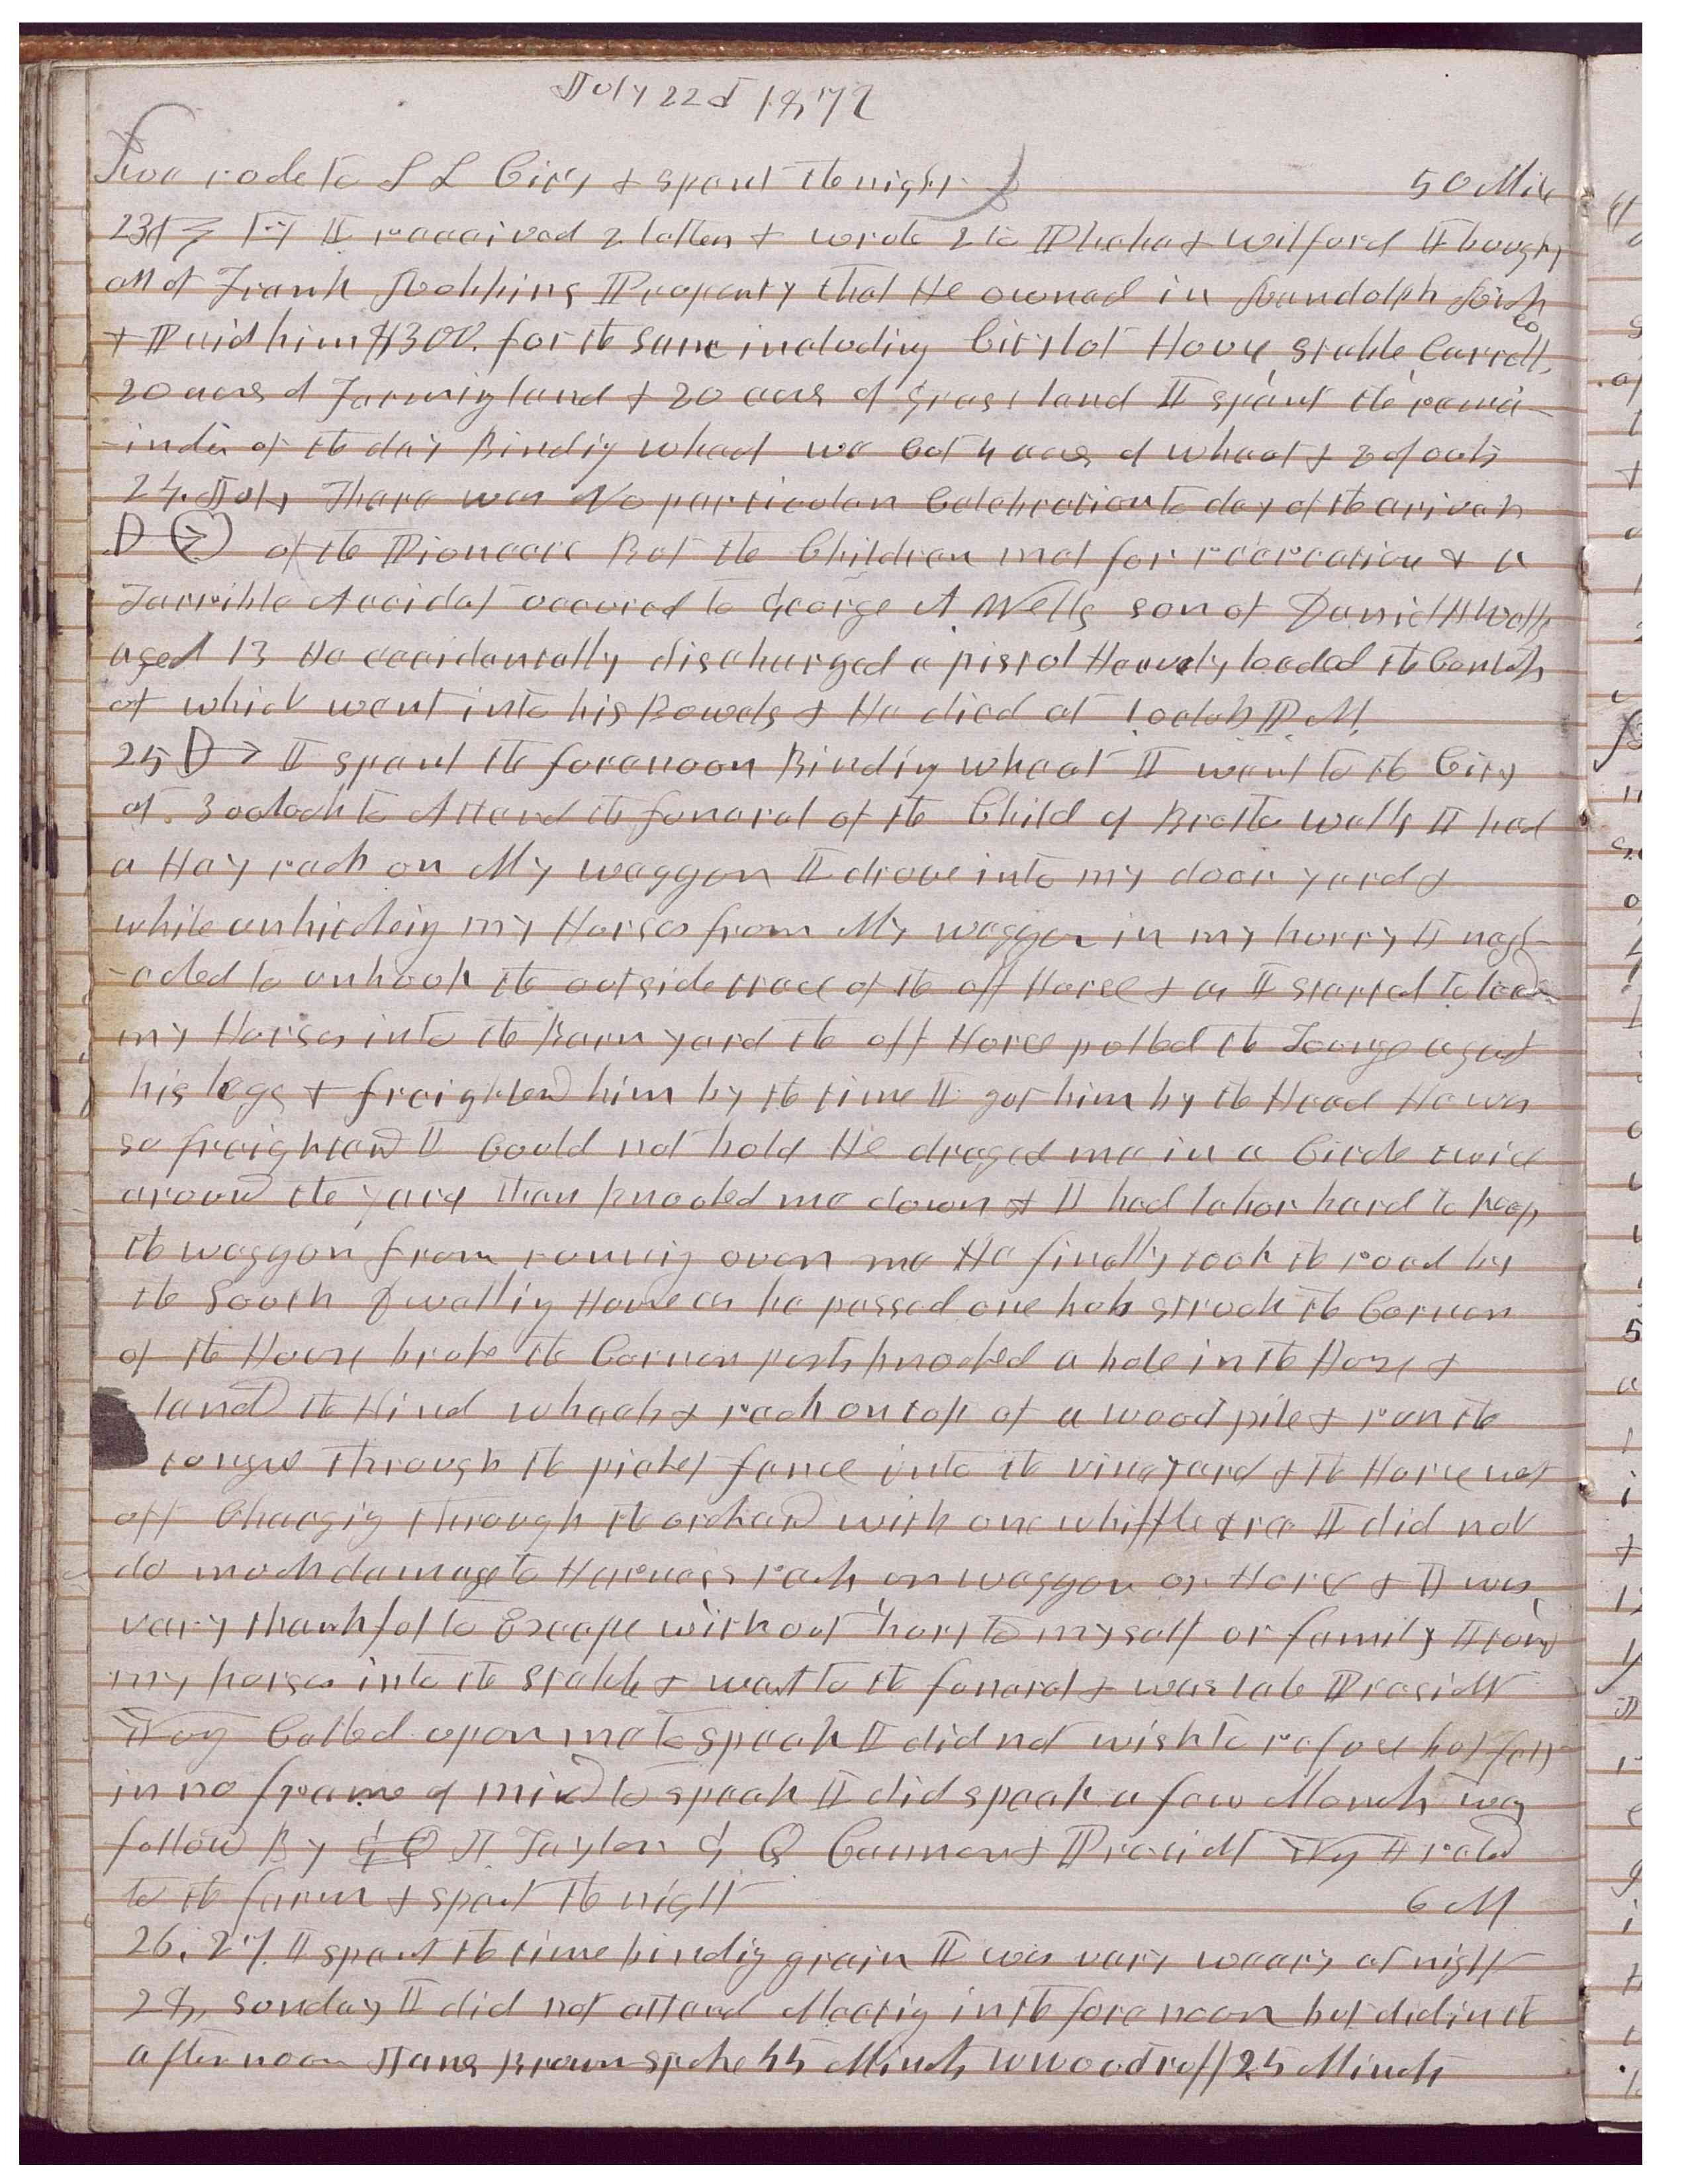 July 22d 1872
rode to S L City & spent the night 50 Mile
23d I received 2 letters & wrote 2 to Phebe & Wilford I bought
all of Frank Property that He owned in Randolph Rich
Co
& Paid him $300. for the same including City lot House, stable Carrell,
20 acres of Farming land & 20 acres of grass land I spent the rema-
-inder of the day Binding wheat we cut 4 acres of wheat & 3 of oats
24. July There was No particular Celebration to day of the arival
of the Pioneers But the Children met for recreation & a
Terrible Accidet occured to George A. Wells son of Daniel H Wells
aged 13 He accidentally discharged a pistol Heavely loaded the Contents
of which went into his Bowels & He died at 1 oclok P.M.
25 I spent the forenoon Binding wheat I went to the City
at 3 oclock to Attend the funeral of the Child of Brother Wells I had
a Hay rack on My waggon I drove into my door yard &
while unhitching my Horses from My waggon in my hurry I negl-
-ected to unhook the outside trace of the off Horse & as I started to lead
my Horses into the Barn yard the off Horse pulled the Tounge against
his legs & freightend him by the time I got him by the Head He was
so freightend I Could not hold He draged me in a Circle twice
around the yard then knocked me down & I had labor hard to keep
the waggon from runing over me He finally took the road by
the South Dwelling House as he passed one hub struck the Corner
of the House broke the Corner posts knocked a hole in the House &
land the Hind wheels & rack on top of a wood pile & run the
tongue through the picket fence into the vineyard & the Horse
off Charging through the orchard with one whiffletree It did not
do much damage to Harness rack or waggon or Horse & I was
very thankful to Escape without hurt to myself or family I
my horses into the stable & went to the funeral & was late Presidet
Yog Called upon me to speak I did not wish to refuse but felt
in no frame of mind to speak I did speak a few Moments was
follow By G Q J. Taylor G Q Cannon & Presidet Yg I rode
to the farm & spent the night 6 M
26. 27. I spent the time binding grain I was very weary at night
28, Sunday I did not attend Meeting in the fore noon but did in the
afternoon James Brown spoke 45 Minuts W Woodruff 25 Minuts